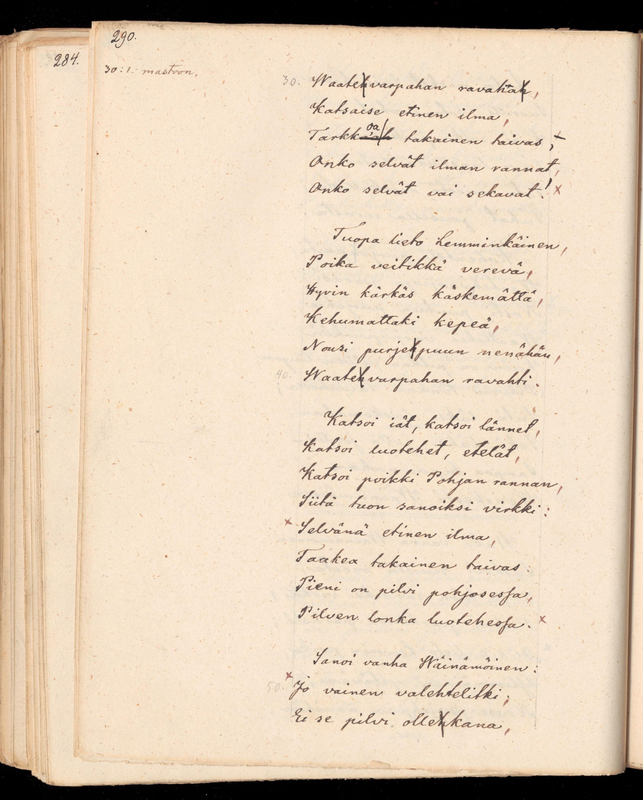 290.
284.
30:1. mastoon.
30. Waatehvarpahan ravahah,
Katsaise etinen ilma,
Tarkkoa takainen taivas,
Onko selvät ilman rannat,
Onko selvät vai sekavat!
Tuopa lieto Lemminkäinen,
Poika veitikkä verevä,
Hyvin kärkäs käskemättä,
Kehumattaki kepeä,
Nousi purjehpuun nenähän,
40. Waatehvarpahan ravahti.
Katsoi iät, katsoi lännet,
Katsoi luotehet, etelät,
Katsoi poikki Pohjan rannan,
Siitä tuon sanoiksi virkki:
Selvänä etinen ilma,
Taakea takainen taivas:
Pieni on pilvi pohjosessa,
Pilven lonka luotehessa.
Sanoi vanha Wäinämöinen:
50. Jo vainen valehtelitki;
Ei se pilvi ollehkana,